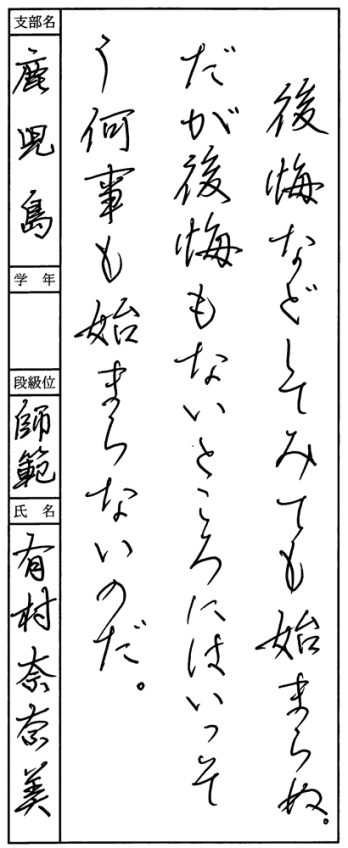 後悔などしてみても始まらぬ。
だが後悔もないところにはいっそ
う何事も始まらないのだ。
支部名
鹿児島
学年
段級位
師範
氏名
有村奈奈美